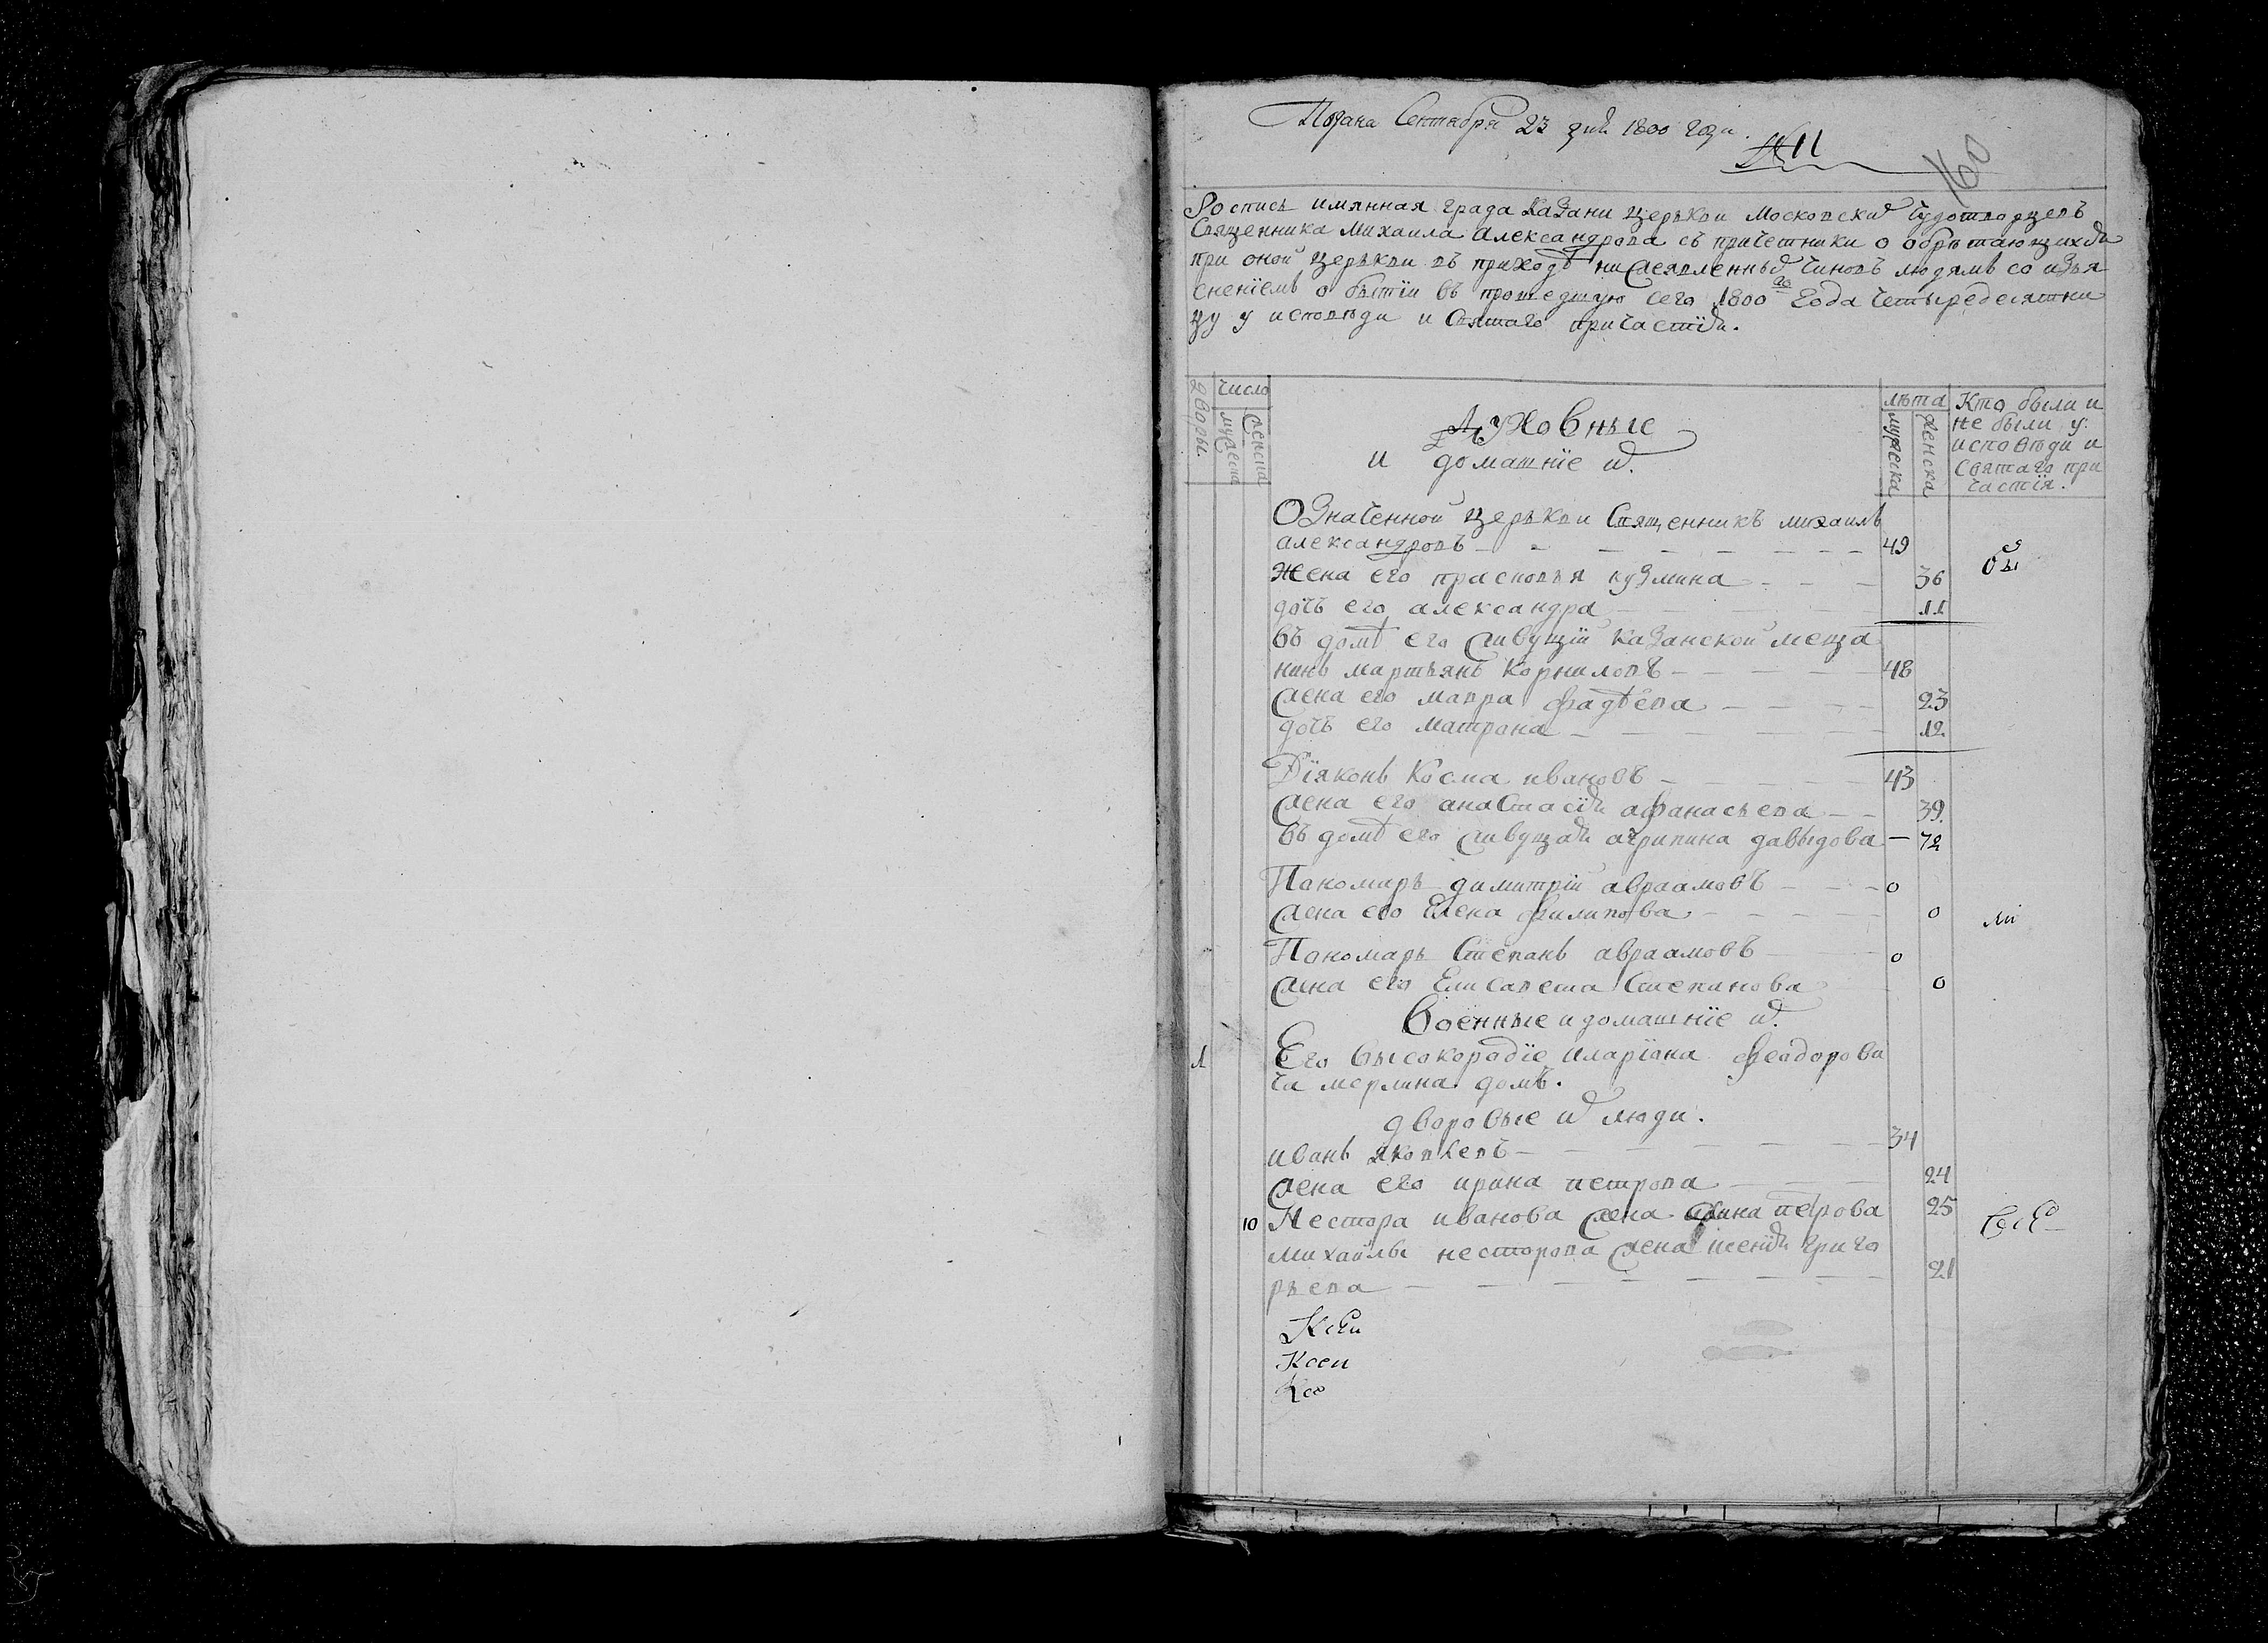 Подана Сентября 23 дня 1800 года.
№ 11
160
Роспись имянная града Казани церькви Московских Чудотворцевъ
Священника Михаила Александрова съ причетники о обрѣтающихся
при оной церькви въ приходѣ нижеявленныхъ чиновъ людямъ со изъя
снениемъ о бытїи въ прошедшую сего 1800го года четыредесятни
цу у исповѣди и Святаго причастїя.
дворы.
число
мужеска
женска
Духовные
и домашнїе их.
лѣта
мужеска
женска
Кто были и
не были у
исповѣди и
Святаго при
частїя.
Означенной церькви Священникъ михаилъ
александровъ 49
жена его прасковья кузмина 36
дочь его александра 11
бы
въ домѣ его живущїй казанской меща
нинъ мартьянъ корниловъ 48
жена его мавра фадѣева 23
дочь его матрона 12
Дїяконъ Косма ивановъ 43
жена его анастасїя афанасьева 39
въ домѣ его живущая агрипина давыдова 72
Пономарь димитрїй авраамовъ 0
жена его Елена филипова 0
ли
Пономарь Степанъ авраамовъ 0
жена его Елисавета Степанова 0
Военные и домашнїе их.
1 Его высокородїе иларїона феодорови
ча мерлина домъ.
дворовые их люди.
иванъ яковлевъ 34
жена его ирина петрова 24
10 Нестора иванова жена ирина петрова 25
михаилы несторова жена ксенїя григо
рьева 21
Ксен
Ксо